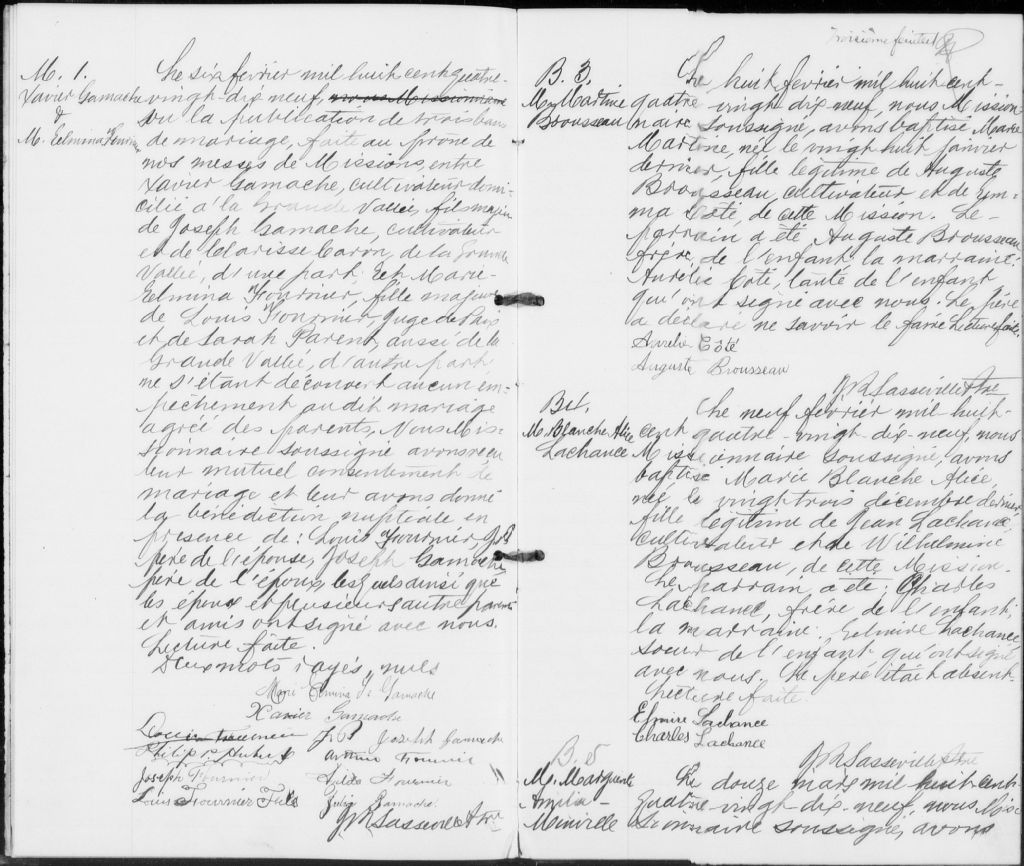 M. 1.
Xavier Gamache
&
M. Eelmina Fournier
Le six février mil huit cent quatre-
vingt-dix neuf, nous Missionnaire
Vu la publication de trois bans
de mariage, faite au prône de
nos messes de Missions, entre
Xavier Gamache, cultivateur domi-
cilié à la Grande Vallée, fils majeur
de Joseph Gamache, cultivateur
et de Clarisse Caron, de la Grande
Vallée, d'une part; Et Marie-
Eelmina Fournier, fille majeure
de Louis Fournier, Juge de Paix
et de Sarah Parent, aussi de la
Grande Vallée, d'autre part;
ne s'étant découvert aucun em-
pêchement au dit mariage
agréé des parents, Nous Mis-
sionnaire soussigné avons reçu
leur mutuel consentement de
mariage et leur avons donné
la bénédiction nuptiale en
présence de: Louis Fournier, J.P.
père de l'épouse, Joseph Gamache
père de l'époux, lesquels ainsi que
les époux et plusieurs autres parents
et amis ont signé avec nous.
Lecture faite.
Deux mots rayés, nuls
Marie Elmina Gamache
Xavier Gamache
Louis Fournier J.P. Joseph Gamache
Philip Fournier
Joseph Fournier Fournier
Louis Fournier Fils Julie Gamache
J R Sasseville Ptre
Troisième feuillet
B. 3.
M. Martine
Brousseau
Le huit février mil huit cent-
quatre-vingt dix neuf, nous Mission-
naire soussigné, avons baptisé Marie
Martine, née le vingt huit janvier
dernier, fille légitime de Auguste
Brousseau, cultivateur et de Em-
ma Coté, de cette Mission. Le-
parrain a été Auguste Brousseau
frère de l'enfant la marraine:
Aurélie Coté, tante de l'enfant
qui ont signé avec nous. Le père
a déclaré ne savoir le faire Lecture faite.
Aurelie Côté
Auguste Brousseau
J R Sasseville Ptre
B 4.
M. Blanche Alice
Lachance
Le neuf février mil huit-
cent quatre-vingt-dix-neuf, nous
Missionnaire soussigné, avons
baptisé Marie Blanche Alice,
née le vingt trois décembre dernier
fille légitime de Jean Lachance
cultivateur et de Wilhelmine
Brousseau, de cette Mission.
Le parrain a été: Charles
Lachance, frère de l'enfant,
la marraine: Elmire Lachance
soeur de l'enfant qui ont signé
avec nous. Le père était absent.
Lecture faite.
Elmire Lachance
Charles Lachance
J R Sasseville Ptre
B. 5
M. Marguerite
Amilia
Minville
Le douze mars mil huit cent
quatre-vingt dix-neuf, nous Mis-
sionnaire soussigné, avons